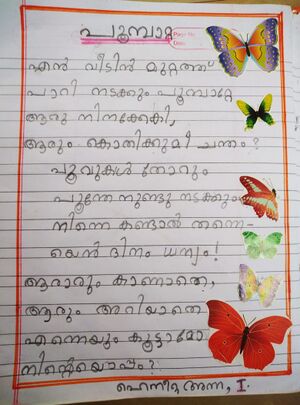 പൂമ്പാറ്റ
Page No.
Date
എൻ വീടിൻ മുറ്റത്ത്
പാറി നടക്കും പൂമ്പാറ്റേ
ആരു നിനക്കേകി,
ആരും കൊതിക്കുമീ ചന്തം?
പൂവുകൾ തോറും
പൂന്തേനുണ്ടു നടക്കും
നിന്നെ കണ്ടാൽ തന്നെ-
യെൻ ദിനം ധന്യം!
ആരാരും കാണാതെ,
ആരും അറിയാതെ
എന്നെയും കൂട്ടാമോ
നിന്റെയൊപ്പം?
അന്ന, I.